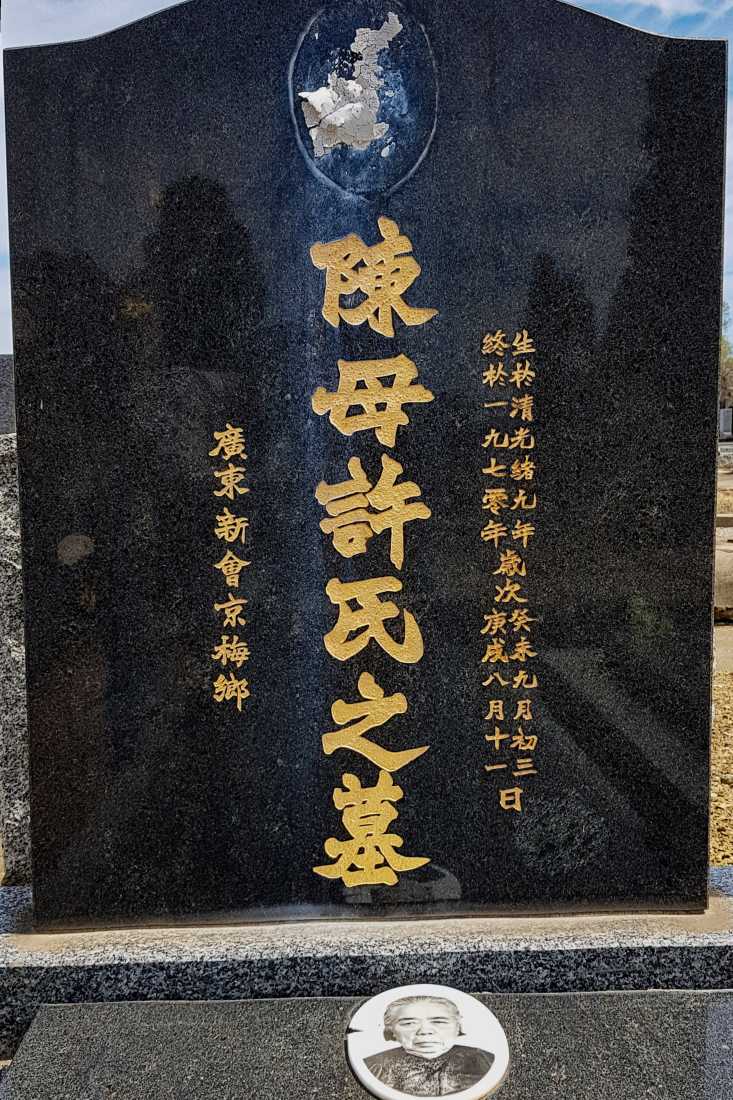 生於清光緒九年歲次癸未九月初三日
終於一九七零年庚戌八月十一
陳母許氏之墓
廣東新會京梅鄉